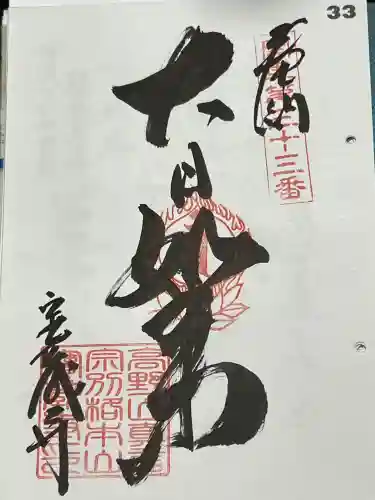 33
奉納
第三十三番
大日如来
高野山真言
宗別格本山
宝蔵寺